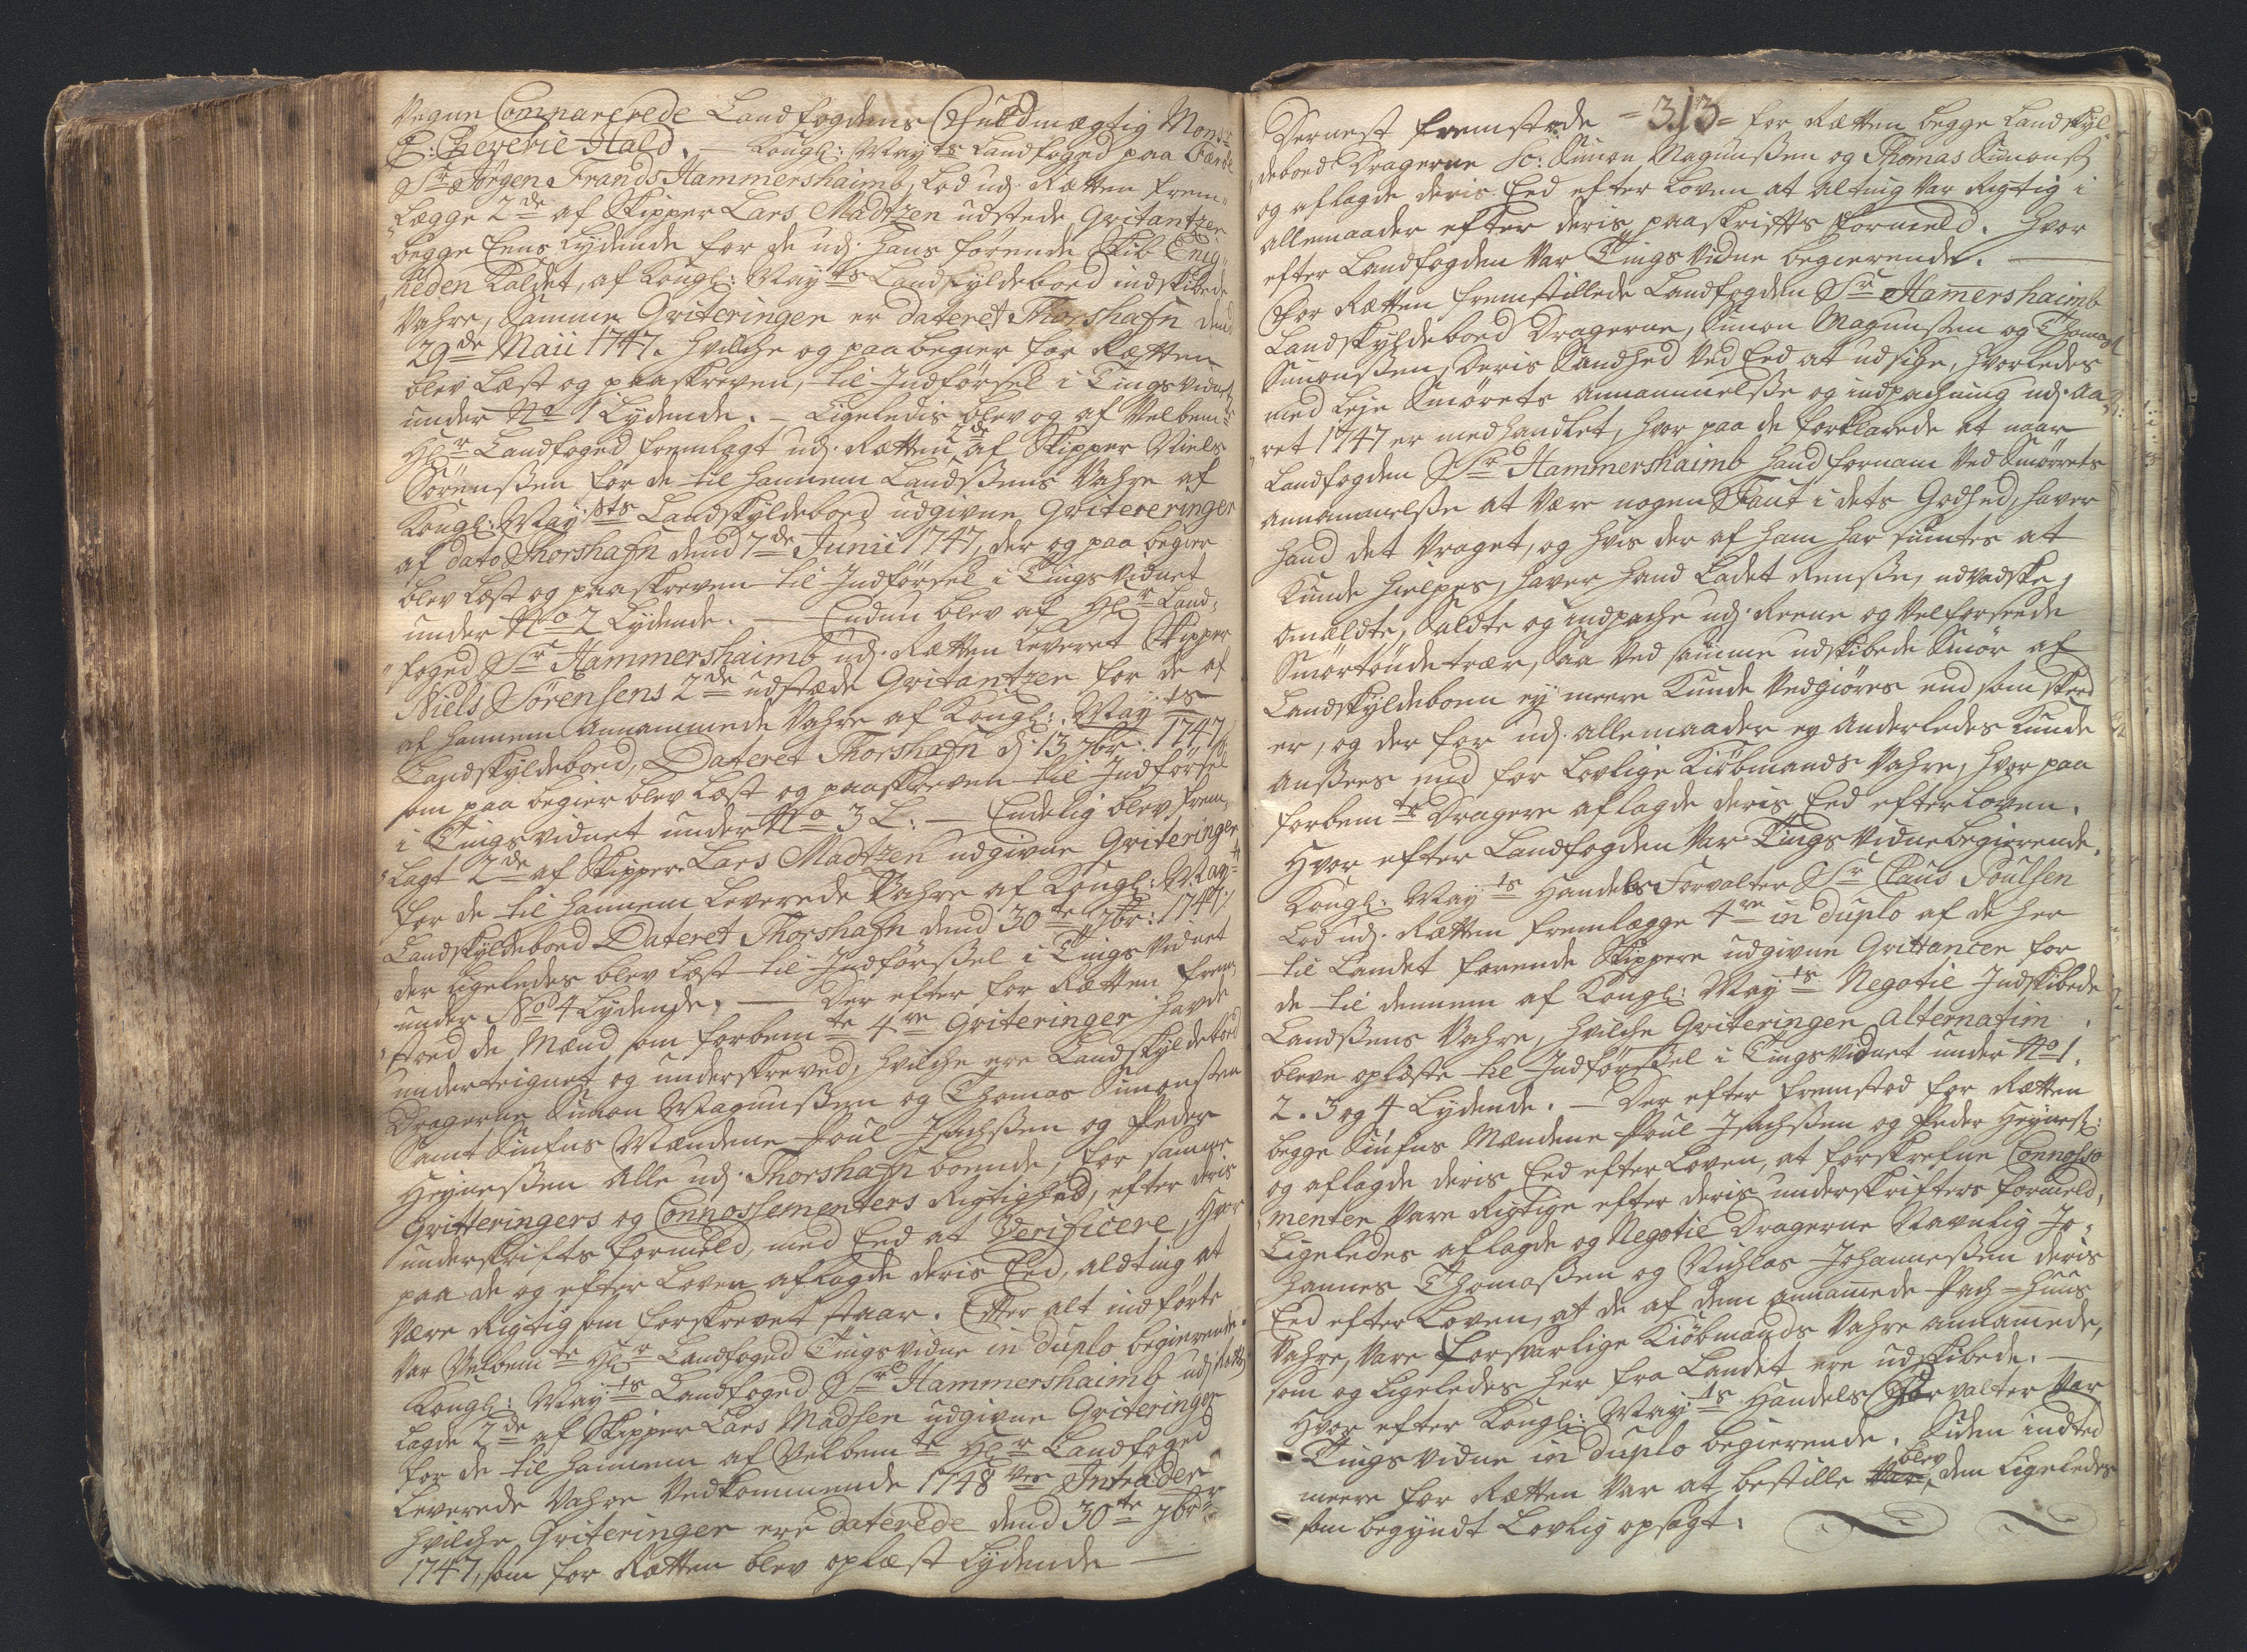 Vegne Comparerede Landfogdens Fuldmægtig Monsr
E: Cheverie Hald. — Kongl: Mayts Landfoged paa Færøe
Sr Jørgen Frands Hammershaimb, lod udj Rætten frem-
„lægge 2de af Skipper Lars Madtzen udstede Qvitantzer
begge Eens Lydende for de udj Hans førende Skib Enig-
„heden kaldet, af Kongl: Mayts Landskyldeboed indskibede
Vahre, Samme Qviteringer er dateret Thorshafn dend
29de Maii 1747. Hvilche og paa begier for Rætten
blev læst og paaskreven, til Indførsel i Tingsvidnet
under No 1 Lydende. — Ligeledis blev og af Velbemte
Hl:r Landfoged fremlagt udj Rætten 2de af Skipper Niels
Sørensßen for de til hannem Landßens Vahre af
Kongl: May:sts Landskyldeboed udgivne Qvitereringer
af dato Thorshafn dend 7de Junii 1747, der og paa begier
blev læst og paaskreven til Indførsel i Tingsvidnet
under No 2 Lydende. — Endnu blev af Hl:r Land-
„foged Sr Hammershaimb udj Rætten leveret Skipper
Niels Sørensens 2de udstæde Qvitantzer for de af
af hannem annammede Vahre af Kongl: Mayts
Landskyldeboed, Dateret Thorshafn d: 13 7br: 1747,
som paa begier blev læst og paaskreven til Indførsel
i Tingsvidnet under No 3 L: — Endelig blev frem-
„lagt 2de af Skipper Lars Madtzen udgivne Qviteringer
for de til hannem leverede Vahre af Kongl: Mayts
Landskyldeboed Dateret Thorshafn dend 30te 7br: 1747,
der ligeledes blev læst til Indførßel i Tingsvidnet
under No 4 Lydende. — Der efter for Rætten frem-
„stoed de Mænd som forbemte 4re Qviteringer havde
underteignet og underskreved, hvilche ere Landskyldeboed
Dragerne Simon Magnußen og Thomas Simonßen
Samt Siufns Mændene Poul Isachßen og Peder
Heyneßen Alle udj Thorshafn boende, for samme
Qvitteringers og Connossementers Rigtighed, efter deris
underskrifts formeld, med Eed at Verificere, Hvor
paa de og efter Loven aflagde deris Eed, alting at
være Rigtig som forskrevet staar. Effter alt indførte
var Velbemte Hl:r Landfoged Tingsvidne in duplo begierende.
Kongl: Mayts Landfoged Sr Hammershaimb udj Rætten
lagde 2de af Skipper Lars Madsen udgivne Qviteringer
for de til hannem af Velbemte Hl:r Landfoged
leverede Vahre Vedkommende 1748des Intrader
hvilche Qviteringer ere daterede dend 30te 7br:
1747, som for Rætten blev oplæst Lydende —
= 313 =
Dernest fremstode for Rætten begge Landskyl-
„deboed Dragerne Sc: Simon Magnußen og Thomas Simonsß:
og aflagde deris Eed efter Loven at alting var Rigtig i
allemaader efter deris paaskriffts formeld. Hvor
efter Landfogden var Tings Vidne begierende. —
For Rætten fremstillede Landfogden Sr Hamershaimb
Landskyldeboed Dragerne, Simon Magnußen og Thomas
Simonßen, deris Sandhed ved Eed at udsige, hvorledes
med leje Smørets annammelße og indpachning udj Aa-
„ret 1747 er medhandlet, hvor paa de forklarede at naar
Landfogden Sr Hammershaimb hand fornam ved Smørrets
annammelße at være nogen Faut i dets Godhed, haver
hand det vraget, og hvis der af ham har siuntes at
kunde hielpes, haver hand ladet Renße, udvadske,
omælte, Salte og indpache udj Reene og velforseede
Smørtønde trær, saa ved samme udskibede Smør af
Landskyldeboen ey meere kunde vedgiøres end som skeed
er, og der for udj allemaader ey anderledes kunde
anßees end for lovlige Kiøbmands Vahre, hvor paa
forbemte Dragere aflagde deris Eed efter Loven.
Hvor efter Landfogden var Tings Vidne begierende.
Kongl: Mayts Handels Forvalter Sr Claus Poulsen
lod udj Rætten fremlægge 4re in duplo af de her
til Landet farende Skippere udgivne Qvittancer for
de til dennem af Kongl: Mayts Negotie Indskibede
Landßens Vahre, hvilche Qviteringer alternatim
bleve oplæste til Indførßel i Tingsvidnet under No 1.
2. 3 og 4 Lydende. — Der efter fremstod for Rætten
begge Siufns Mændene Poul Isachßen og Peder Heynesß:
og aflagde deris Eed efter Loven, at forskrefne Connosse-
„menter vare Rigtige efter deris underskrifters formeld,
Ligeledes aflagde og Negotie Dragerne Navnlig Jo-
hannes Thomaßen og Nichlas Johanneßen deris
Eed efter Loven, at de af dem annammede Pach-Huus
Vahre, vare forsvarlige Kiøbmands Vahre annammede,
som og ligeledes her fra Landet ere udskibede. —
Hvor efter Kongl: Mayts Handels Forvalter var
Tings vidne in duplo begierende. Siden indted
meere for Rætten var at bestille blev den ligeledes
som begyndt Lovlig opsagt.